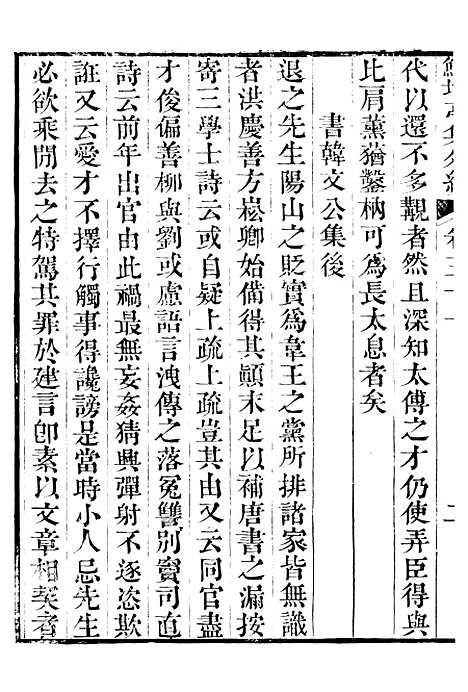 鮚埼亭集外編 卷三十一 二
代以還不多覯者然且深知太傅之才仍使弄臣得與
比肩薰蕕鑿枘可為長太息者矣
書韓文公集後
退之先生陽山之貶實為韋王之黨所排諸家皆無識
者洪慶善方崧卿始備得其顛末足以補唐書之漏按
寄三學士詩云或自疑上疏上疏豈其由又云同官盡
才俊偏善柳與劉或慮語言洩傳之落冤讐別竇司直
詩云前年出官由此禍最無妄姦猜興彈射不逐恣欺
誑又云愛才不擇行觸事得讒謗是當時小人忌先生
必欲乘閒去之特駕其罪於建言卽素以文章相契者